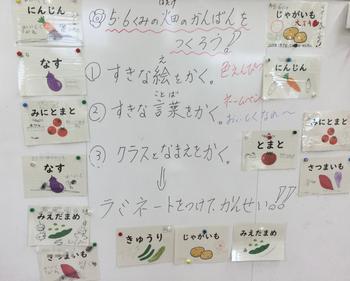 ◎5・6くみの畑のかんばんを
はたけ
つくろう!!
① すきな絵をかく。
え
色えんぴつ
② すきな言葉をかく。
ことば
ネームペン
おいしくなあれ〜
③ クラスとなまえをかく。
⇓
ラミネートをつけて、かんせい!!
にんじん
なす
みにとまと
なす
みえだまめ
さつまいも
じゃがいも
にんじん
みにとまと
とまと
さつまいも
きゅうり
じゃがいも
みえだまめ